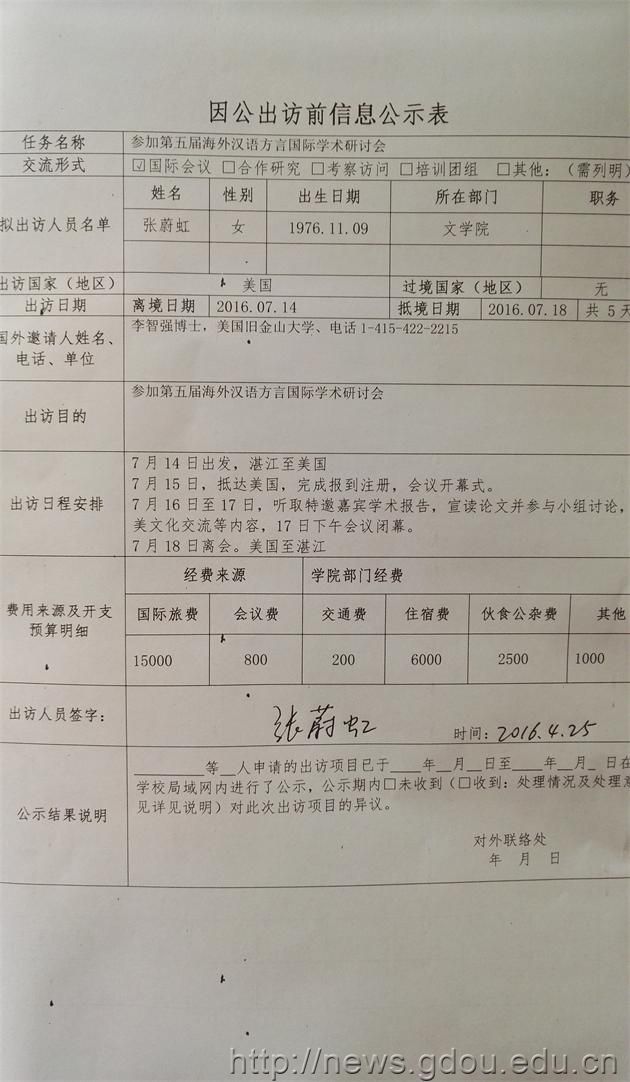 因公出访前信息公示表
任务名称 参加第五届海外汉语方言国际学术研讨会
交流形式 ☑国际会议 □合作研究 □考察访问 □培训团组 □其他：（需列明）
拟出访人员名单 姓名 性别 出生日期 所在部门 职务
张蔚虹 女 1976.11.09 文学院
出访国家（地区） 美国 过境国家（地区） 无
出访日期 离境日期 2016.07.14 抵境日期 2016.07.18 共 5 天
国外邀请人姓名、 李智强博士，美国旧金山大学、电话 1-415-422-2215
电话、单位
出访目的 参加第五届海外汉语方言国际学术研讨会
出访日程安排 7 月 14 日出发，湛江至美国
7 月 15 日，抵达美国，完成报到注册，会议开幕式。
7 月 16 日至 17 日，听取特邀嘉宾学术报告，宣读论文并参与小组讨论，
美文化交流等内容，17 日下午会议闭幕。
7 月 18 日离会。美国至湛江
费用来源及开支
预算明细
经费来源 学院部门经费
国际旅费 会议费 交通费 住宿费 伙食公杂费 其他
15000 800 200 6000 2500 1000
出访人员签字： 张蔚虹 时间：2016.4.25
公示结果说明 ________等__人申请的出访项目已于____年__月__日至____年__月_日在
学校局域网内进行了公示，公示期内□未收到（□收到：处理情况及处理意
见详见说明）对此次出访项目的异议。
对外联络处
年 月 日
http://news.gdou.edu.cn